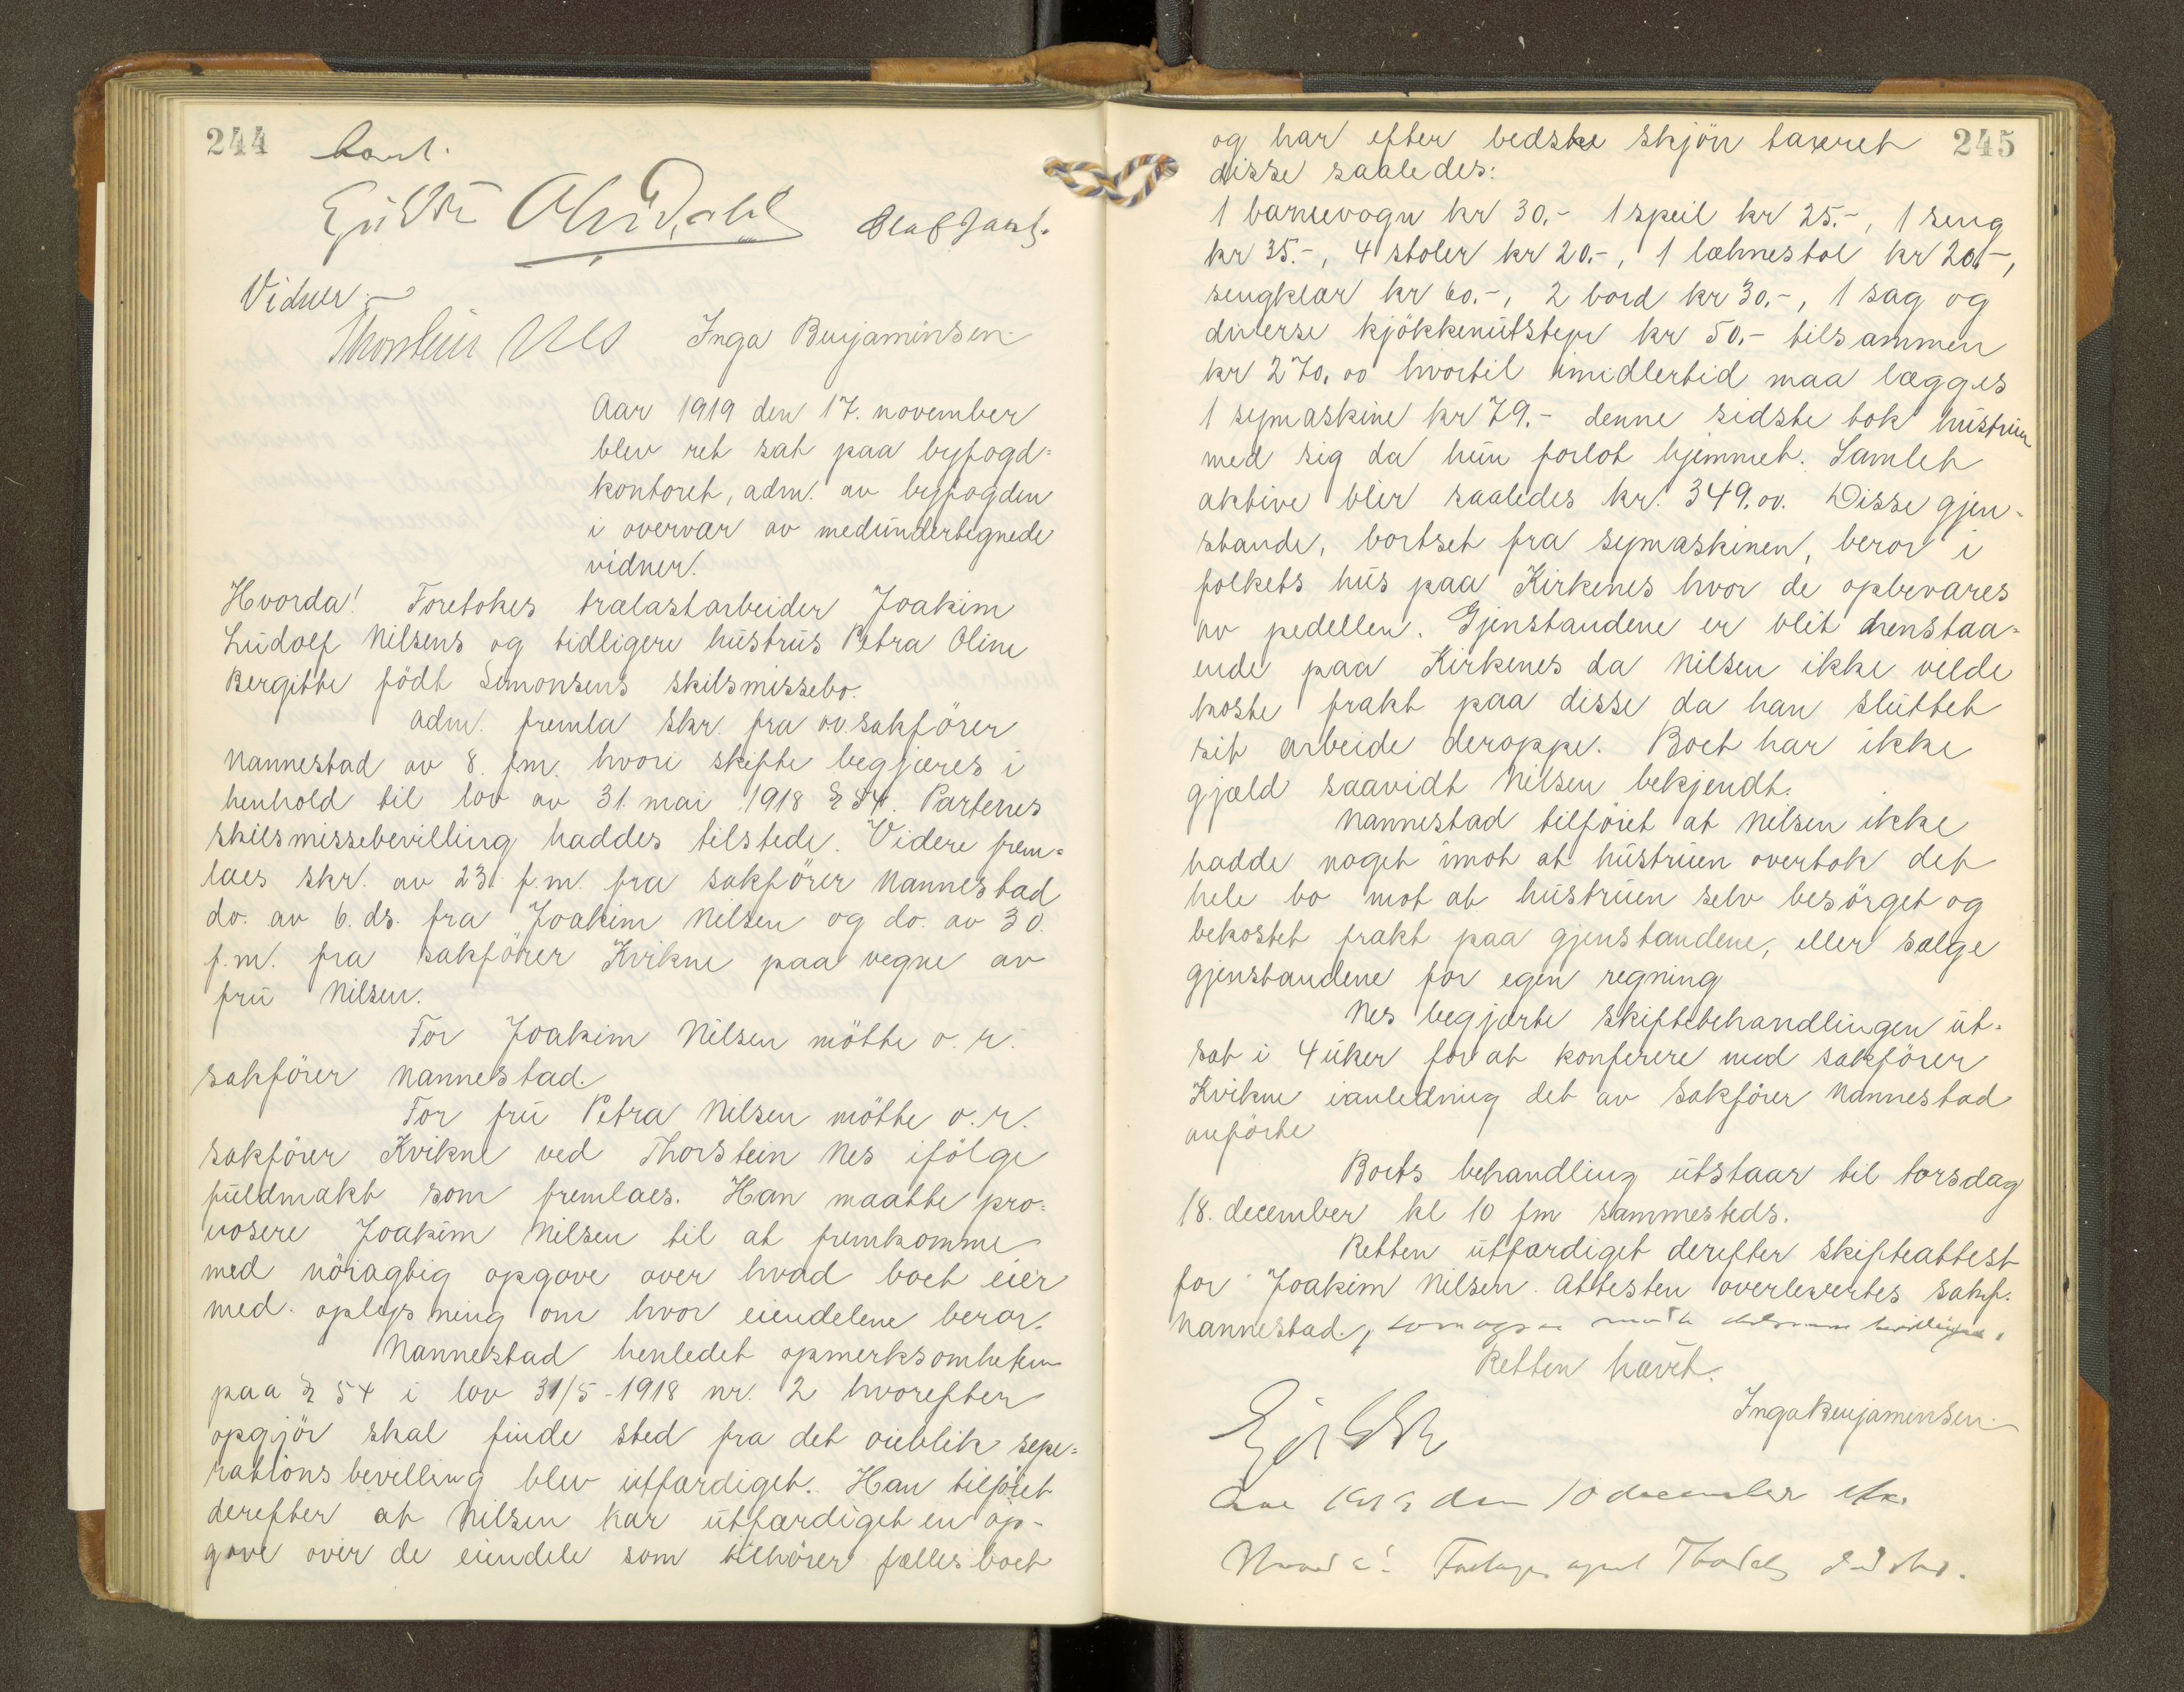 244
Vidner:
Thorstein Nes Inga Benjaminsen
Aar 1919 den 17. november
blev ret sat paa byfogd-
kontoret, adm. av byfogden
i overvær av medundertegnede
vidner.
Hvorda! Foretokes trælastarbeider Joakim
Ludolf Nilsens og tidligere hustrus Petra Oline
Bergitte födt Simonsens skilsmissebo.
Adm. fremla skr. fra o.r. sakförer
Nannestad av 8. f.m. hvori skifte begjæres i
henhold til lov av 31. mai 1918 § 54. Partenes
skilsmissebevilling haddes tilstede. Videre frem-
laes skr. av 23. f.m. fra sakförer Nannestad
do. av 6. ds. fra Joakim Nilsen og do. av 30.
f.m. fra sakförer Kvikne paa vegne av
fru Nilsen.
For Joakim Nilsen mötte o.r.
sakförer Nannestad.
For fru Petra Nilsen mötte o.r.
sakförer Kvikne ved Thorstein Nes ifölge
fuldmakt som fremlaes. Han maatte pro-
vosere Joakim Nilsen til at fremkomme
med nöiagtig opgave over hvad boet eier
med oplysning om hvor eiendelene beror.
Nannestad henledet opmerksomheten
paa § 54 i lov 31/5-1918 nr. 2 hvorefter
opgjör skal finde sted fra det öieblik sepe-
rationsbevilling blev utfærdiget. Han tilföiet
derefter at Nilsen har utfærdiget en op-
gave over de eiendele som tilhörer fællesboet
245
og har efter bedste skjön taxeret
disse saaledes:
1 barnevogn kr 30.- 1 speil kr 25.-, 1 seng
kr 35.-, 4 stoler kr 20.-, 1 lænestol kr 20.-,
sengklær kr 60.-, 2 bord kr 30.-, 1 sag og
diverse kjökkenutstyr kr 50.- tilsammen
kr 270.00 hvortil imidlertid maa lægges
1 symaskine kr 79.- denne sidste tok hustruen
med sig da hun forlot hjemmet. Samlet
aktive blir saaledes kr. 349.00. Disse gjen-
stande, bortset fra symaskinen, beror i
folkets hus paa Kirkenes hvor de opbevares
av pedellen. Gjenstandene er blit henstaa-
ende paa Kirkenes da Nilsen ikke vilde
koste frakt paa disse da han sluttet
sit arbeide deroppe. Boet har ikke
gjæld saavidt Nilsen bekjendt.
Nannestad tilföiet at Nilsen ikke
hadde noget imot at hustruen overtok det
hele bo mot at hustruen selv besörget og
bekostet frakt paa gjenstandene, eller sælge
gjenstandene for egen regning
Nes begjærte skiftebehandlingen ut-
sat i 4 uker for at konferere med sakförer
Kvikne ianledning det av sakförer Nannestad
anförte
Boets behandling utstaar til torsdag
18. december kl 10 fm sammesteds.
Retten utfærdiget derefter skifteattest
for Joakim Nilsen. Attesten overlevertes sakf.
Nannestad,
Retten hævet.
Inga Benjaminsen.
Aar 1919 den 10 december